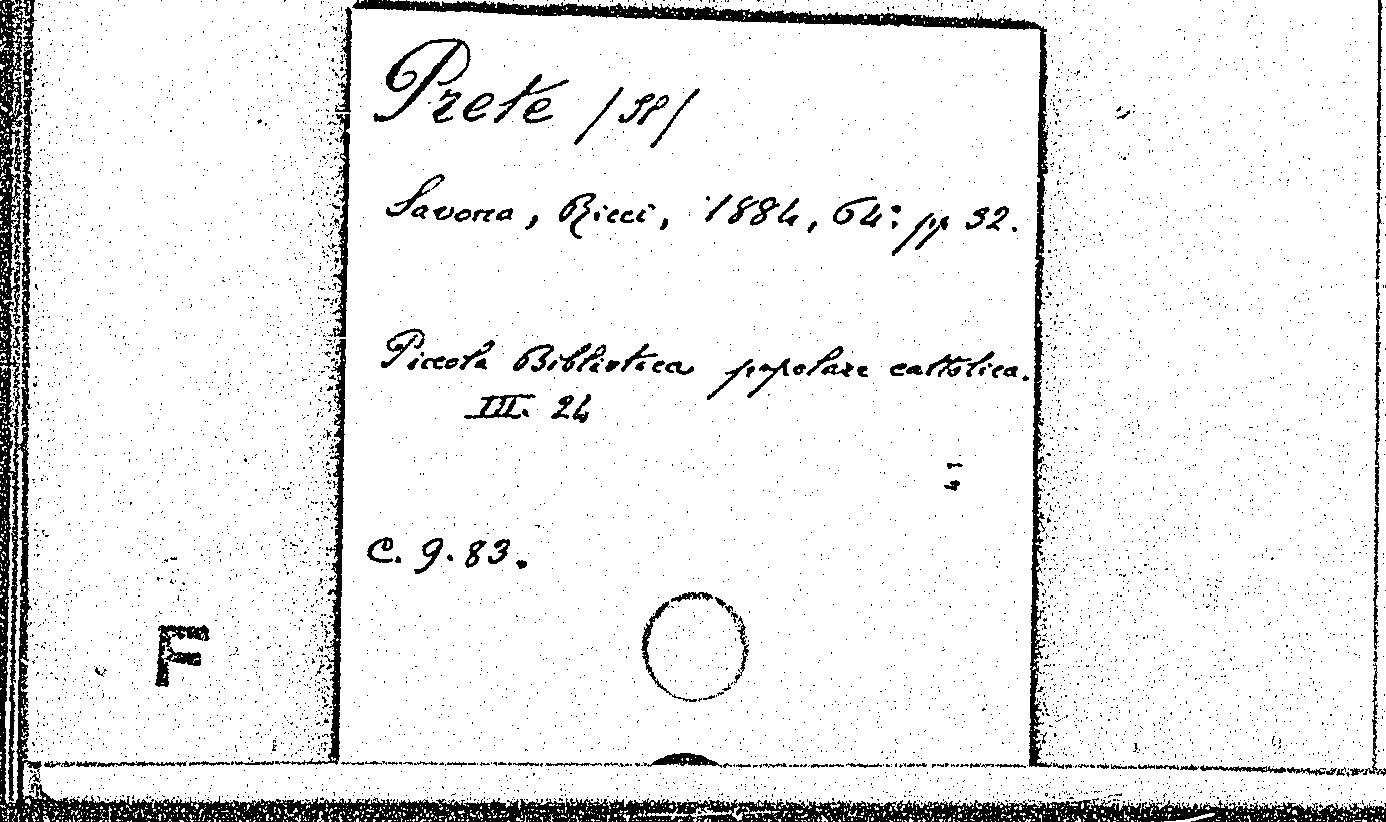 Prete /Il/
Savona, Ricci, 1884, 64°: pp 32.
Piccola Biblioteca popolare cattolica.
III. 24
41
C. 9. 83.
F